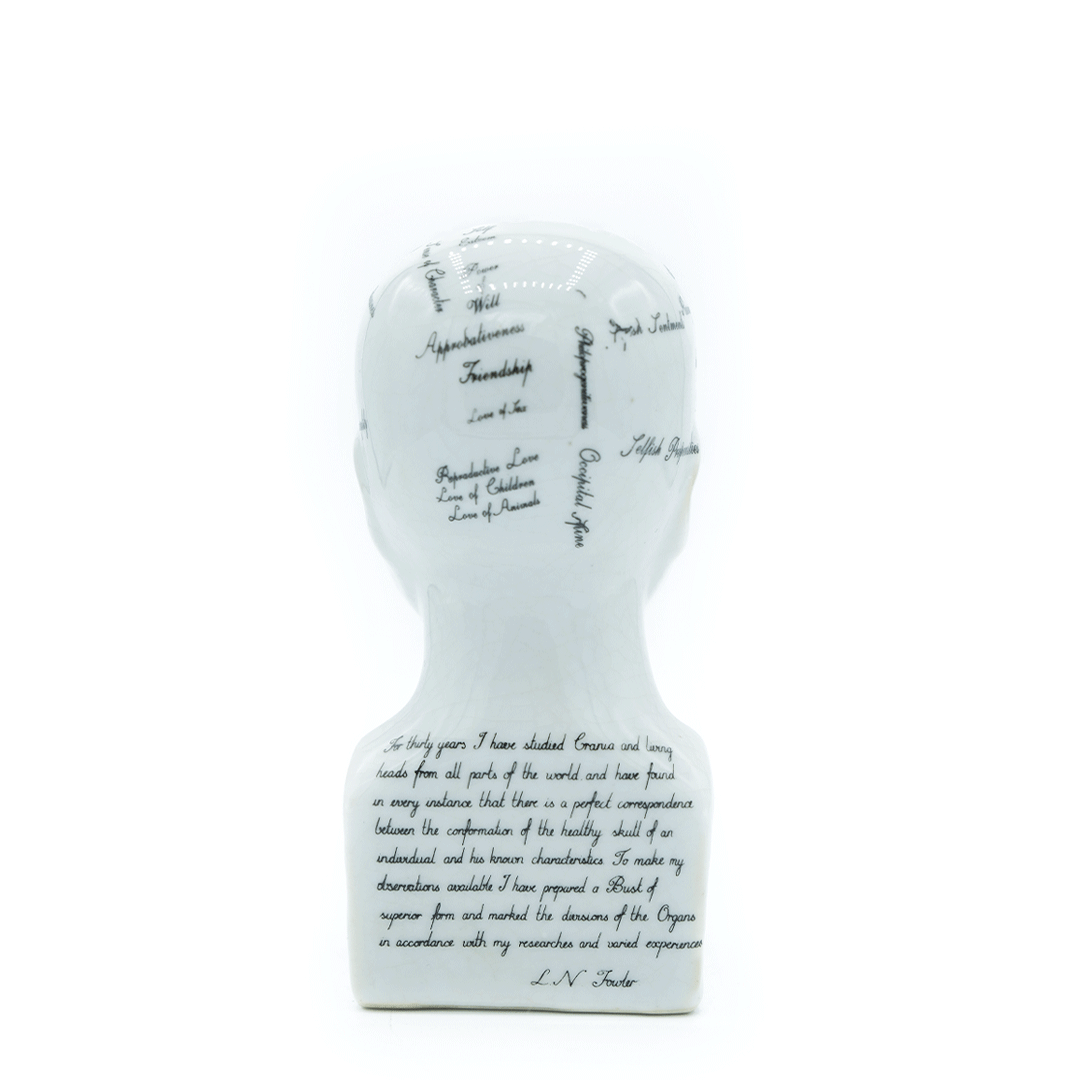 Self
Esteem
Power
of
Will
of Character
Approbativeness
Friendship
Love of Sex
Reproductive Love
Love of Children
Love of Animals
Philoprogenitiveness
Occipital Spine
Sentiments
Selfish Propensities
For thirty years I have studied Crania and living
heads from all parts of the world and have found
in every instance that there is a perfect correspondence
between the conformation of the healthy skull of an
individual and his known characteristics. To make my
observations available I have prepared a Bust of
superior form and marked the divisions of the Organs
in accordance with my researches and varied experiences
L. N Fowler